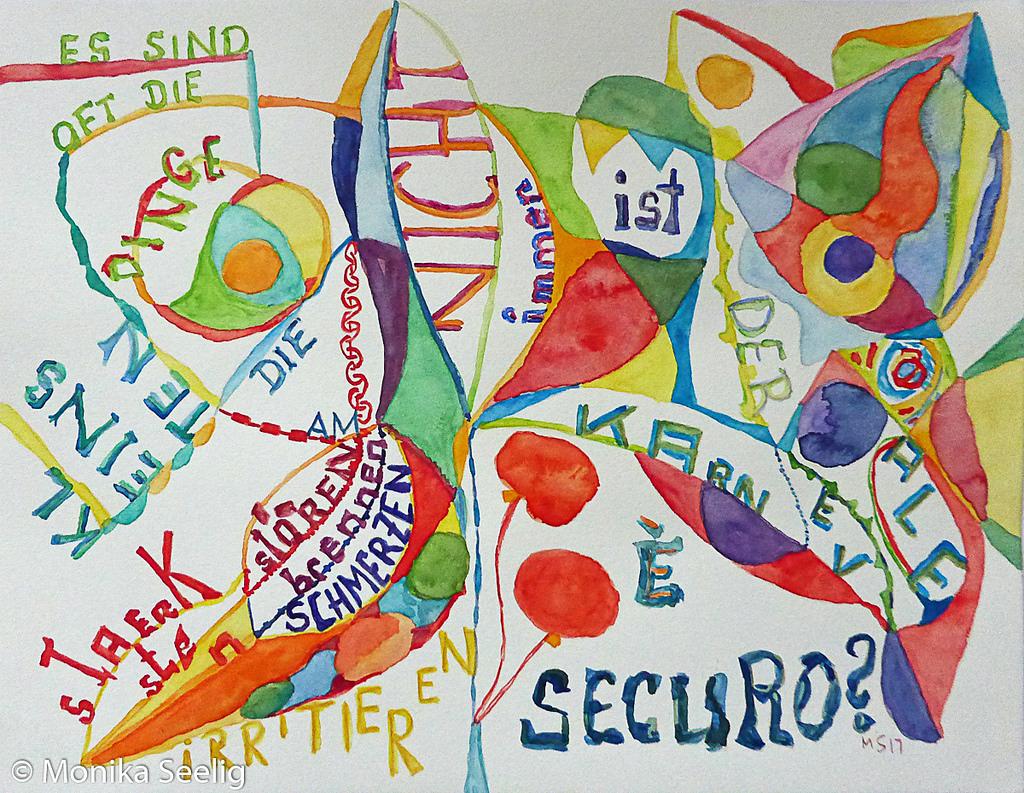 ES SIND
OFT DIE
DINGE
DIE
AM
STAERK
stEn
stÖREN
brennen
SCHMERZEN
iRRiTIEREN
NICHT
immer
ist
DER
KARNEV
ALE
È
SECURO?
MS17
© Monika Seelig